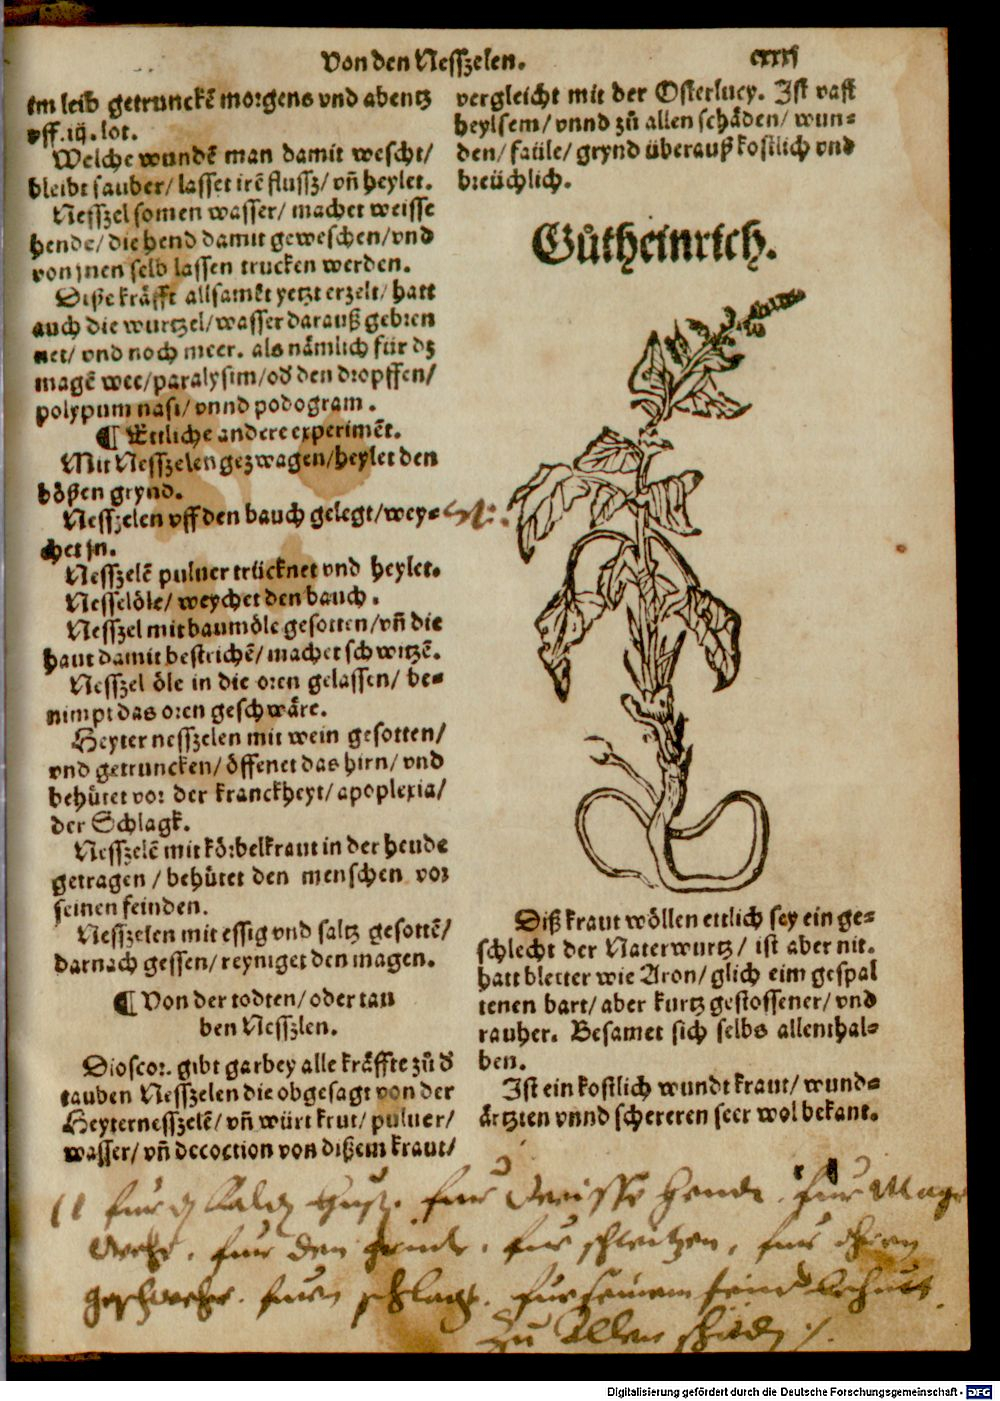 Von den Nesszelen.
im leib getrunckē morgens vnd abentz
vff .iij. lot.
Welche wundē man damit wescht/
bleibt sauber/ lasset irē flussz/ vñ heylet.
Nesszel somen wasser/ machet weisse
hende/ die hend damit geweschen/ vnd
von jnen selb lassen trucken werden.
Diße kräfft allsamēt yetzt erzelt/ hatt
auch die wurtzel/ wasser darauß gebren
net/ vnd noch meer. als nämlich für dz
magē wee/ paralysim/ od den dropffen/
polypum nasi/ vnnd podogram.
¶ Ettliche andere experimēt.
Mit Nesszelen gezwagen/ heylet den
bößen grynd.
Nesszelen vff den bauch gelegt/ wey-
chet jn.
Nesszelē puluer trücknet vnd heylet.
Nesselöle/ weychet den bauch.
Nesszel mit baumöle gesotten/ vñ die
haut damit bestrichē/ machet schwitzē.
Nesszel öle in die oren gelassen/ be-
nimpt das oren geschwäre.
Heyter nesszelen mit wein gesotten/
vnd getruncken/ öffenet das hirn/ vnd
behütet vor der kranckheyt/ apoplexia/
der Schlagk.
Nesszelē mit körbelkraut in der hende
getragen/ behütet den menschen vor
seinen feinden.
Nesszelen mit essig vnd saltz gesottē/
darnach gessen/ reyniget den magen.
¶ Von der todten/ oder tau
ben Nesszlen.
Dioscor. gibt garbey alle kräffte zů d
tauben Nesszelen die obgesagt von der
Heyternesszelē/ vñ würt krut/ puluer/
wasser/ vñ decoction von dißem kraut/
vergleicht mit der Osterlucy. Ist vast
heylsem/ vnnd zů allen schäden/ wun-
den/ faüle/ grynd überauß kostlich vnd
breüchlich.
Gůtheinrich.
Diß kraut wöllen ettlich sey ein ge-
schlecht der Naterwurtz/ ist aber nit.
hatt bletter wie Aron/ glich eim gespal
tenen bart/ aber kurtz gestossener/ vnd
rauher. Besamet sich selbs allenthal-
ben.
Ist ein kostlich wundt kraut/ wund-
ärtzten vnnd schereren seer wol bekant.
für Weisse hende. für Mage
wehe. für den grindt. für schwitzen, für ohren
geschwehr. fürn schlagk. für seinem feind behüt
Zu Allen schäden
Digitalisierung gefördert durch die Deutsche Forschungsgemeinschaft - DFG